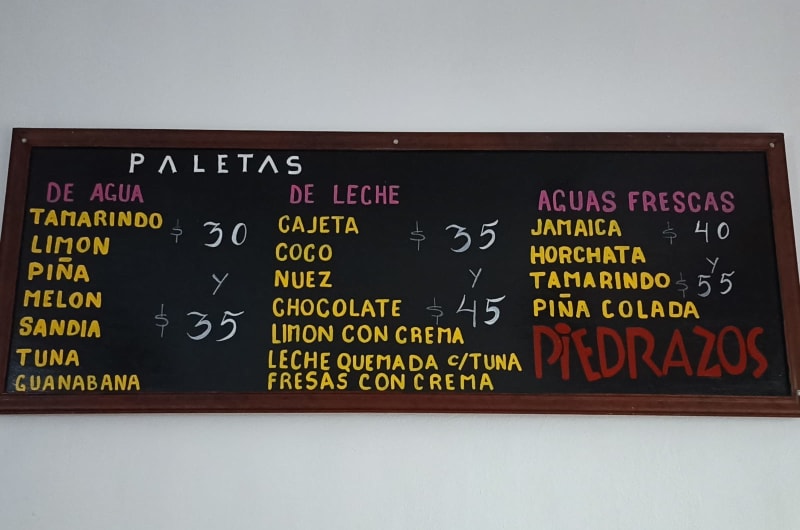 PALETAS
DE AGUA
TAMARINDO
LIMON
PIÑA
MELON
SANDIA
TUNA
GUANABANA
$ 30
Y
$ 35
DE LECHE
CAJETA
COCO
NUEZ
CHOCOLATE
LIMON CON CREMA
LECHE QUEMADA C/TUNA
FRESAS CON CREMA
$ 35
Y
$ 45
AGUAS FRESCAS
JAMAICA
HORCHATA
TAMARINDO
PIÑA COLADA
$ 40
Y
$ 55
PiEDRAZOS